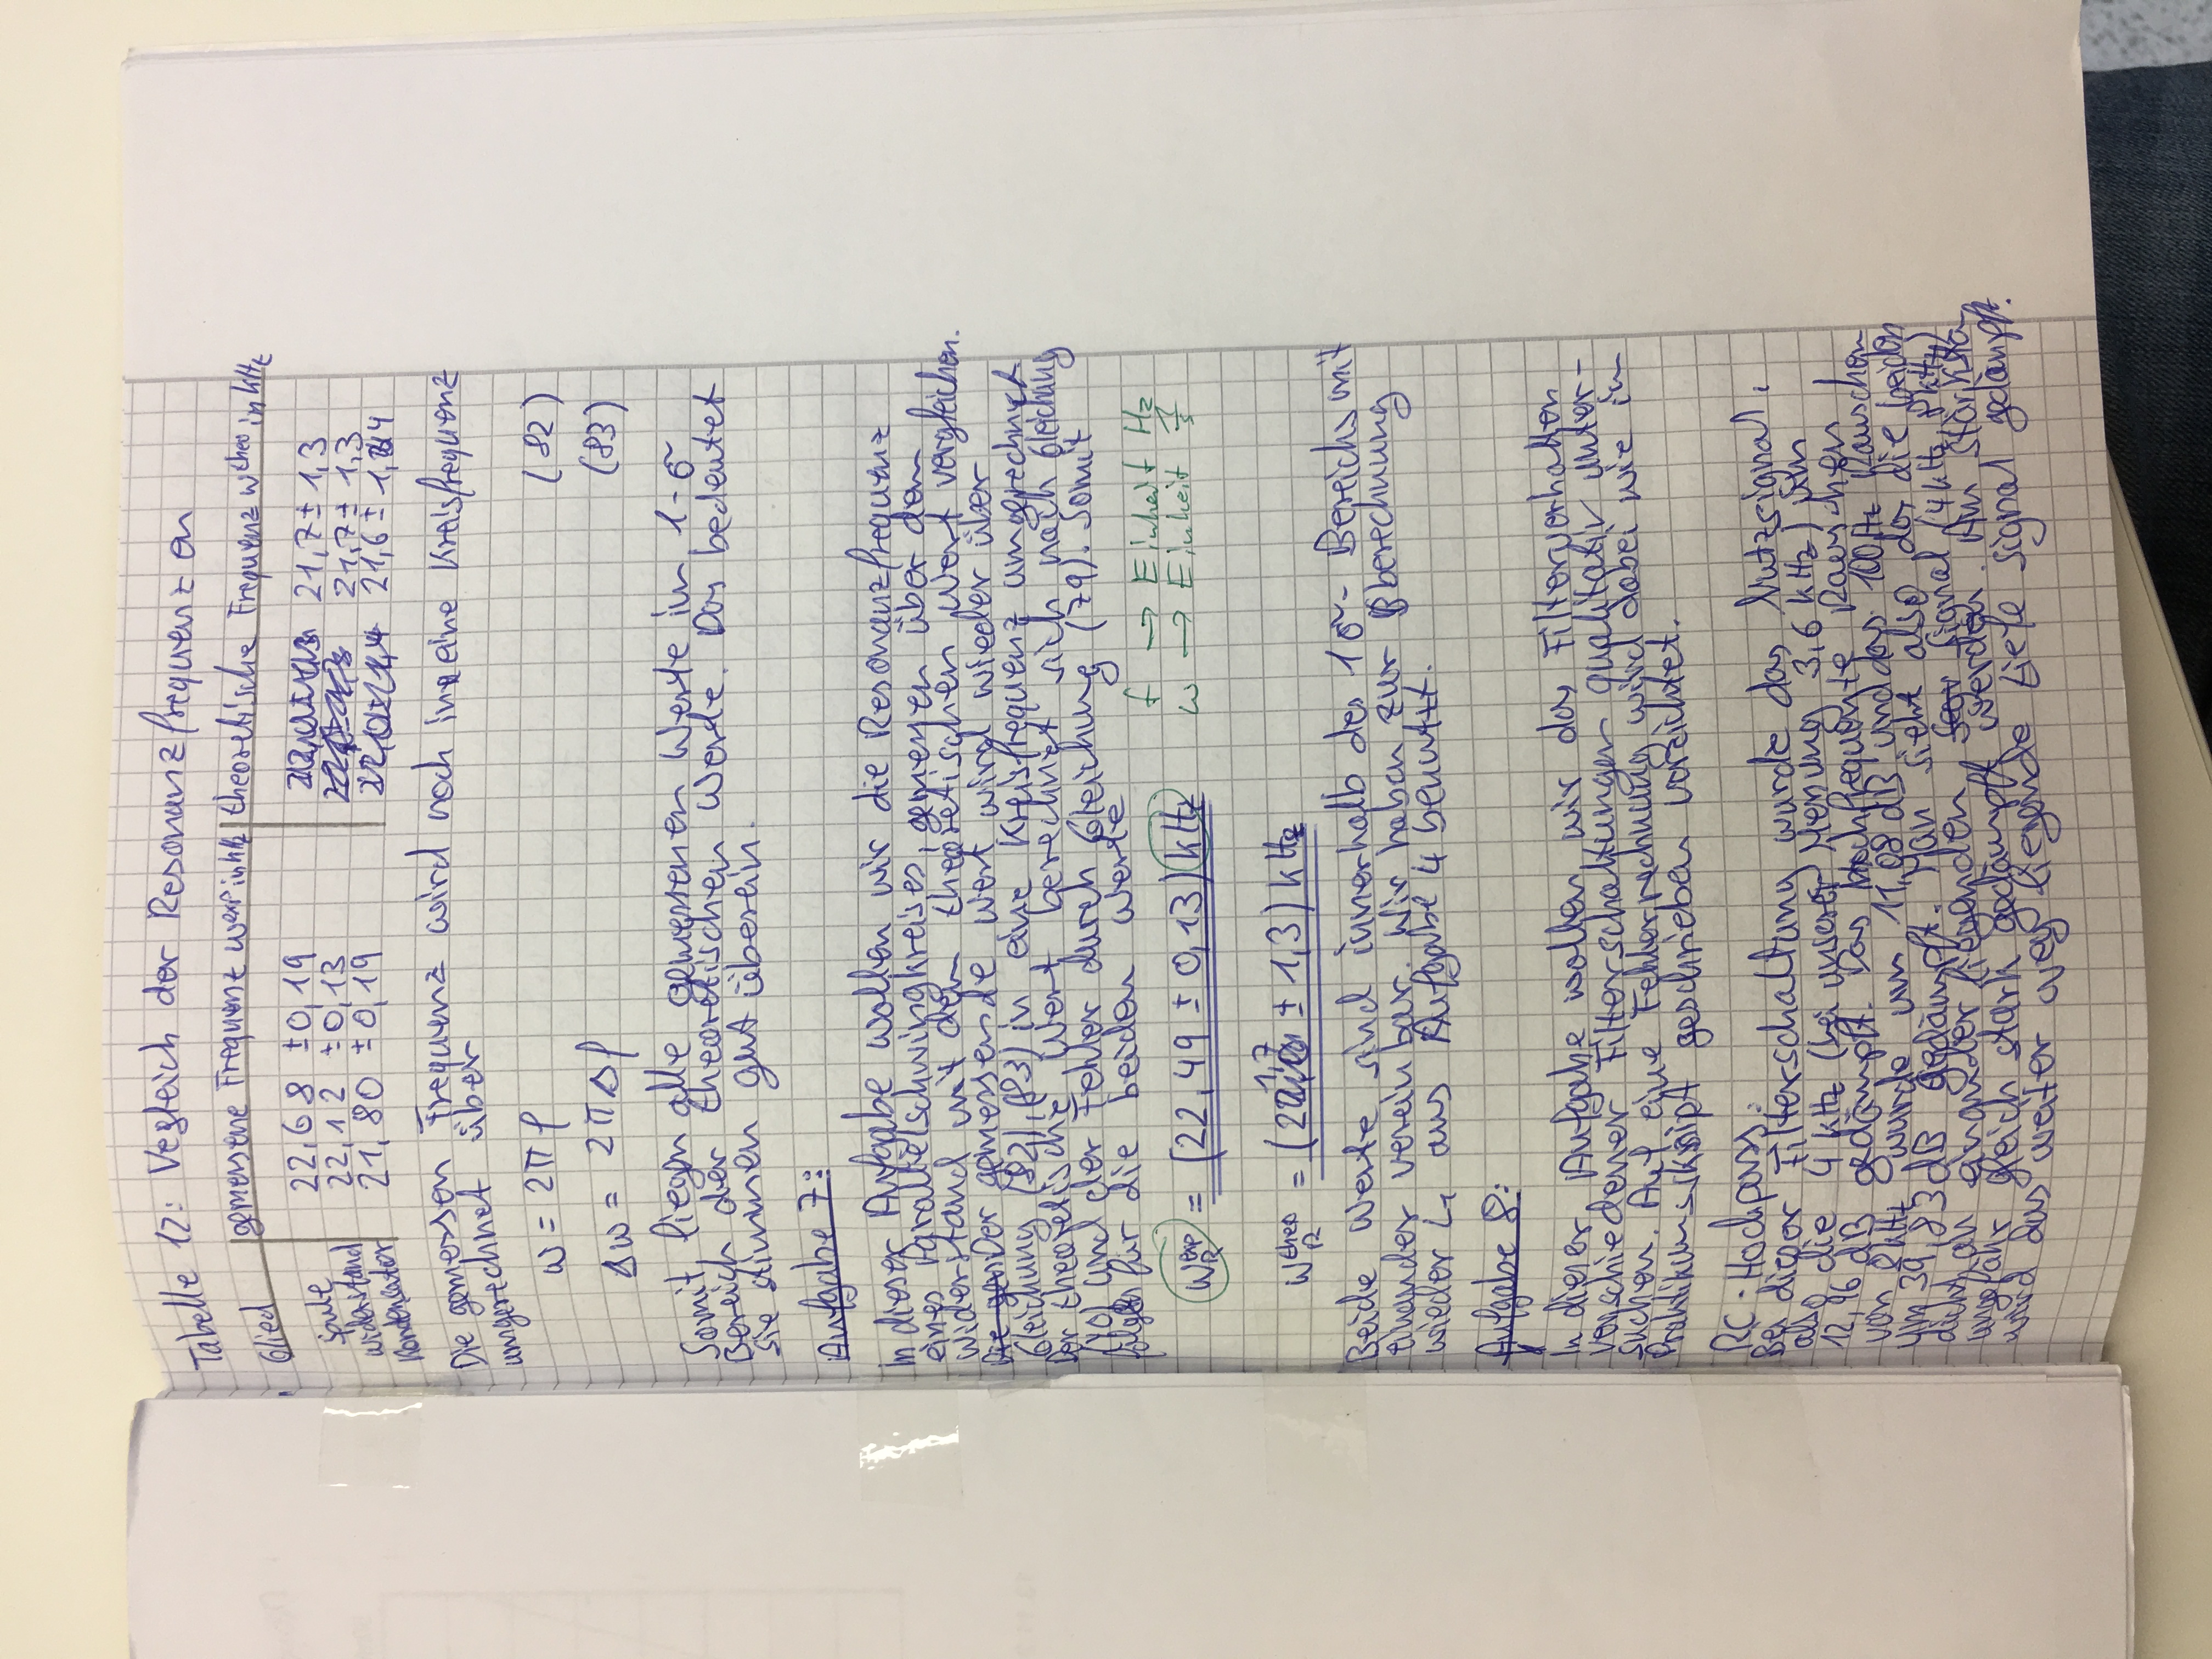 Tabelle 12: Vegleich der Resonanzfrequenzen
Glied gemessene Frequenz ω^exp in kHz theoretische Frequenz ω^theo in kHz
Spule 22,68 ± 0,19 21,7 ± 1,3
Widerstand 22,12 ± 0,13 21,7 ± 1,3
Kondensator 21,80 ± 0,19 21,6 ± 1,4
Die gemessen Frequenz wird noch in eine Kreisfrequenz
umgerechnet über
ω = 2πf (82)
Δω = 2πΔf (83)
Somit liegen alle gemessenen Werte im 1-σ
Bereich der theoretischen Werte. Das bedeutet
sie stimmen gut überein.
Aufgabe 7:
In dieser Aufgabe wollen wir die Resonanzfrequenz
eines Parallelschwingkreises, gemessen über dem
Widerstand mit dem theoretischen Wert vergleichen.
Die gen Der gemessende Wert wird wieder über
Gleichung (82), (83) in eine Kreisfrequenz umgerechnet
Der theoretische Wert berechnet sich nach Gleichung
und der Fehler durch Gleichung (79). Somit
folgen für die beiden Werte
f → Einheit Hz
ω → Einheit 1/s
ω_R^exp = (22,49 ± 0,13) kHz
ω_R^theo = (21,7 ± 1,3) kHz
Beide Werte sind innerhalb des 1σ- Bereichs mit
einander vereinbar. Wir haben zur Bberechnung
wieder L₁ aus Aufgabe 4 benutzt.
Aufgabe 8:
In dieser Aufgabe wollen wir das Filterverhalten
verschiedener Filterschaltungen qualitativ unter-
suchen. Auf eine Fehlerrechnung wird dabei wie im
Praktikumsskript geschrieben verzichtet.
RC-Hochpass:
Bei dieser Filterschaltung wurde das Nutzsignal,
also die 4 kHz (bei unserer Messung 3,6 kHz) um
12,96 dB gedämpft. Das hochfrequente Rauschen
von 8kHz wurde um 11,08 dB und das 100Hz Rauschen
um 39,83dB gedämpft. Man sieht also das die beiden
dicht an einander liegenden Signal (4kHz, 8kHz)
ungefähr gleich stark gedämpft werden. Am stärksten
wird das weiter weg liegende tiefe Signal gedämpft.